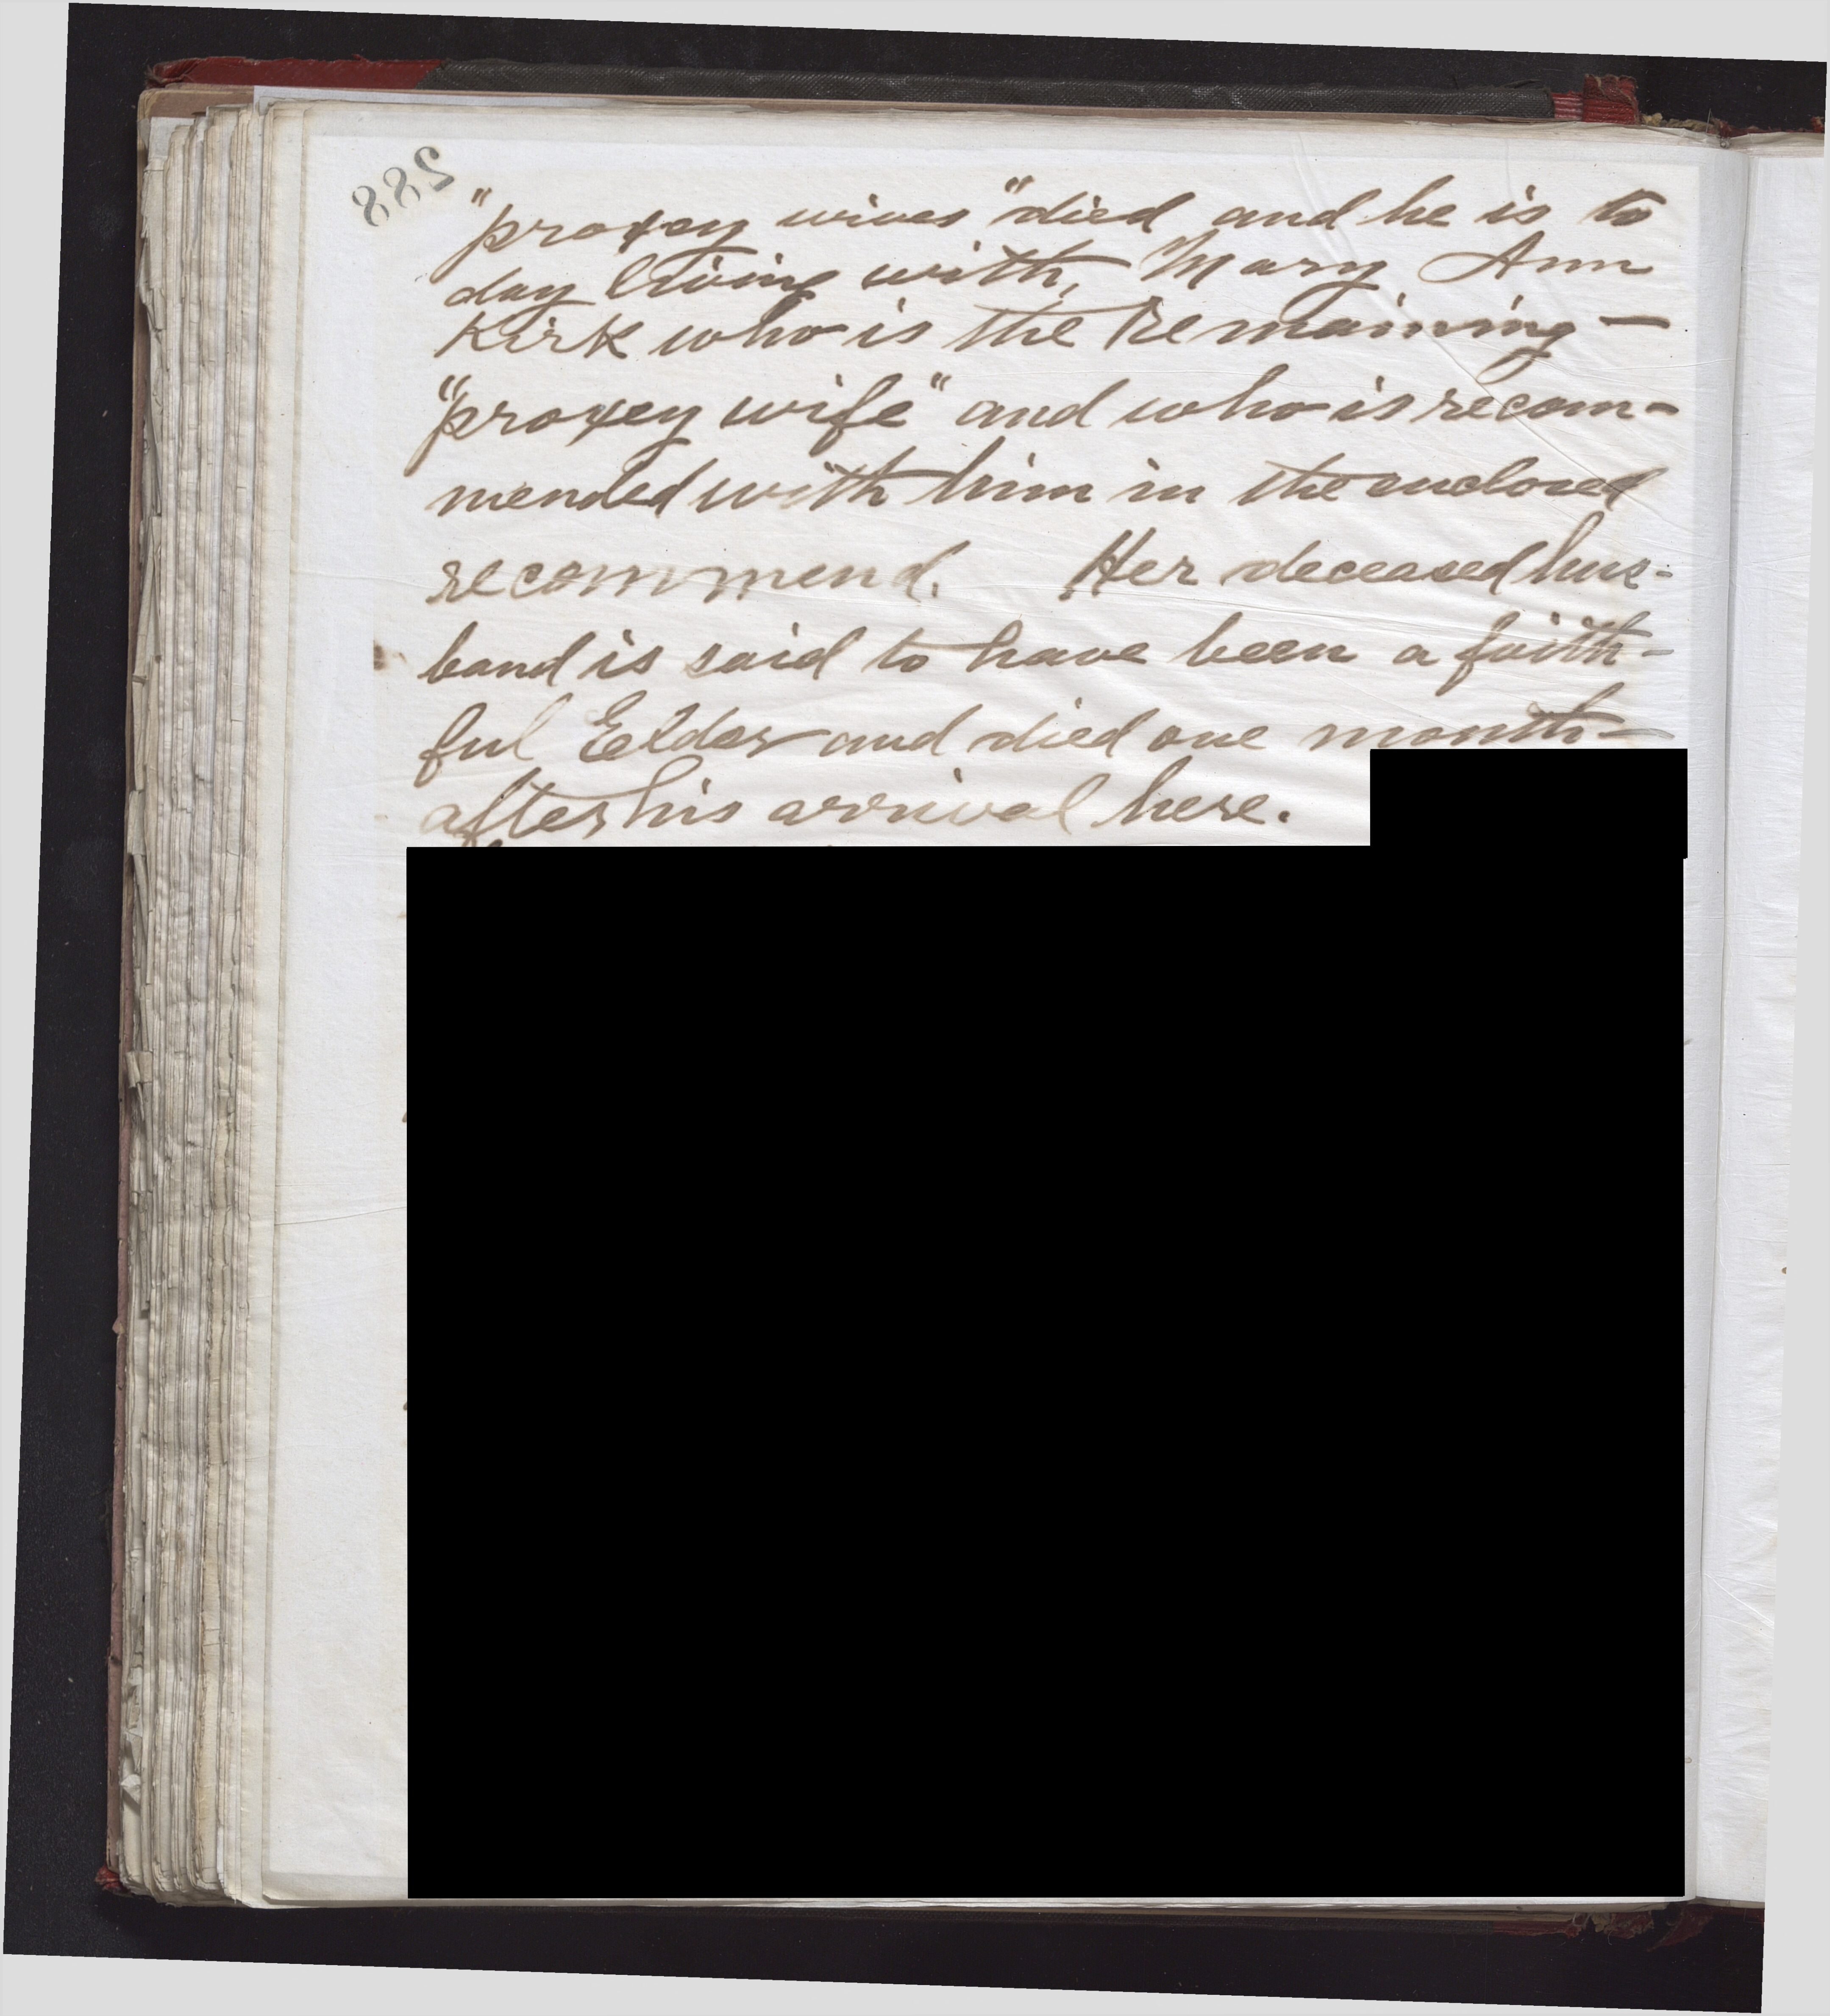 288
"proxey wives" died and he is to
day living with, Mary Ann
Kirk who is the remaining —
"proxey wife" and who is recom-
mended with him in the enclosed
recommend. Her deceased hus-
band is said to have been a faith-
ful Elder and died one month —
after his arrival here.